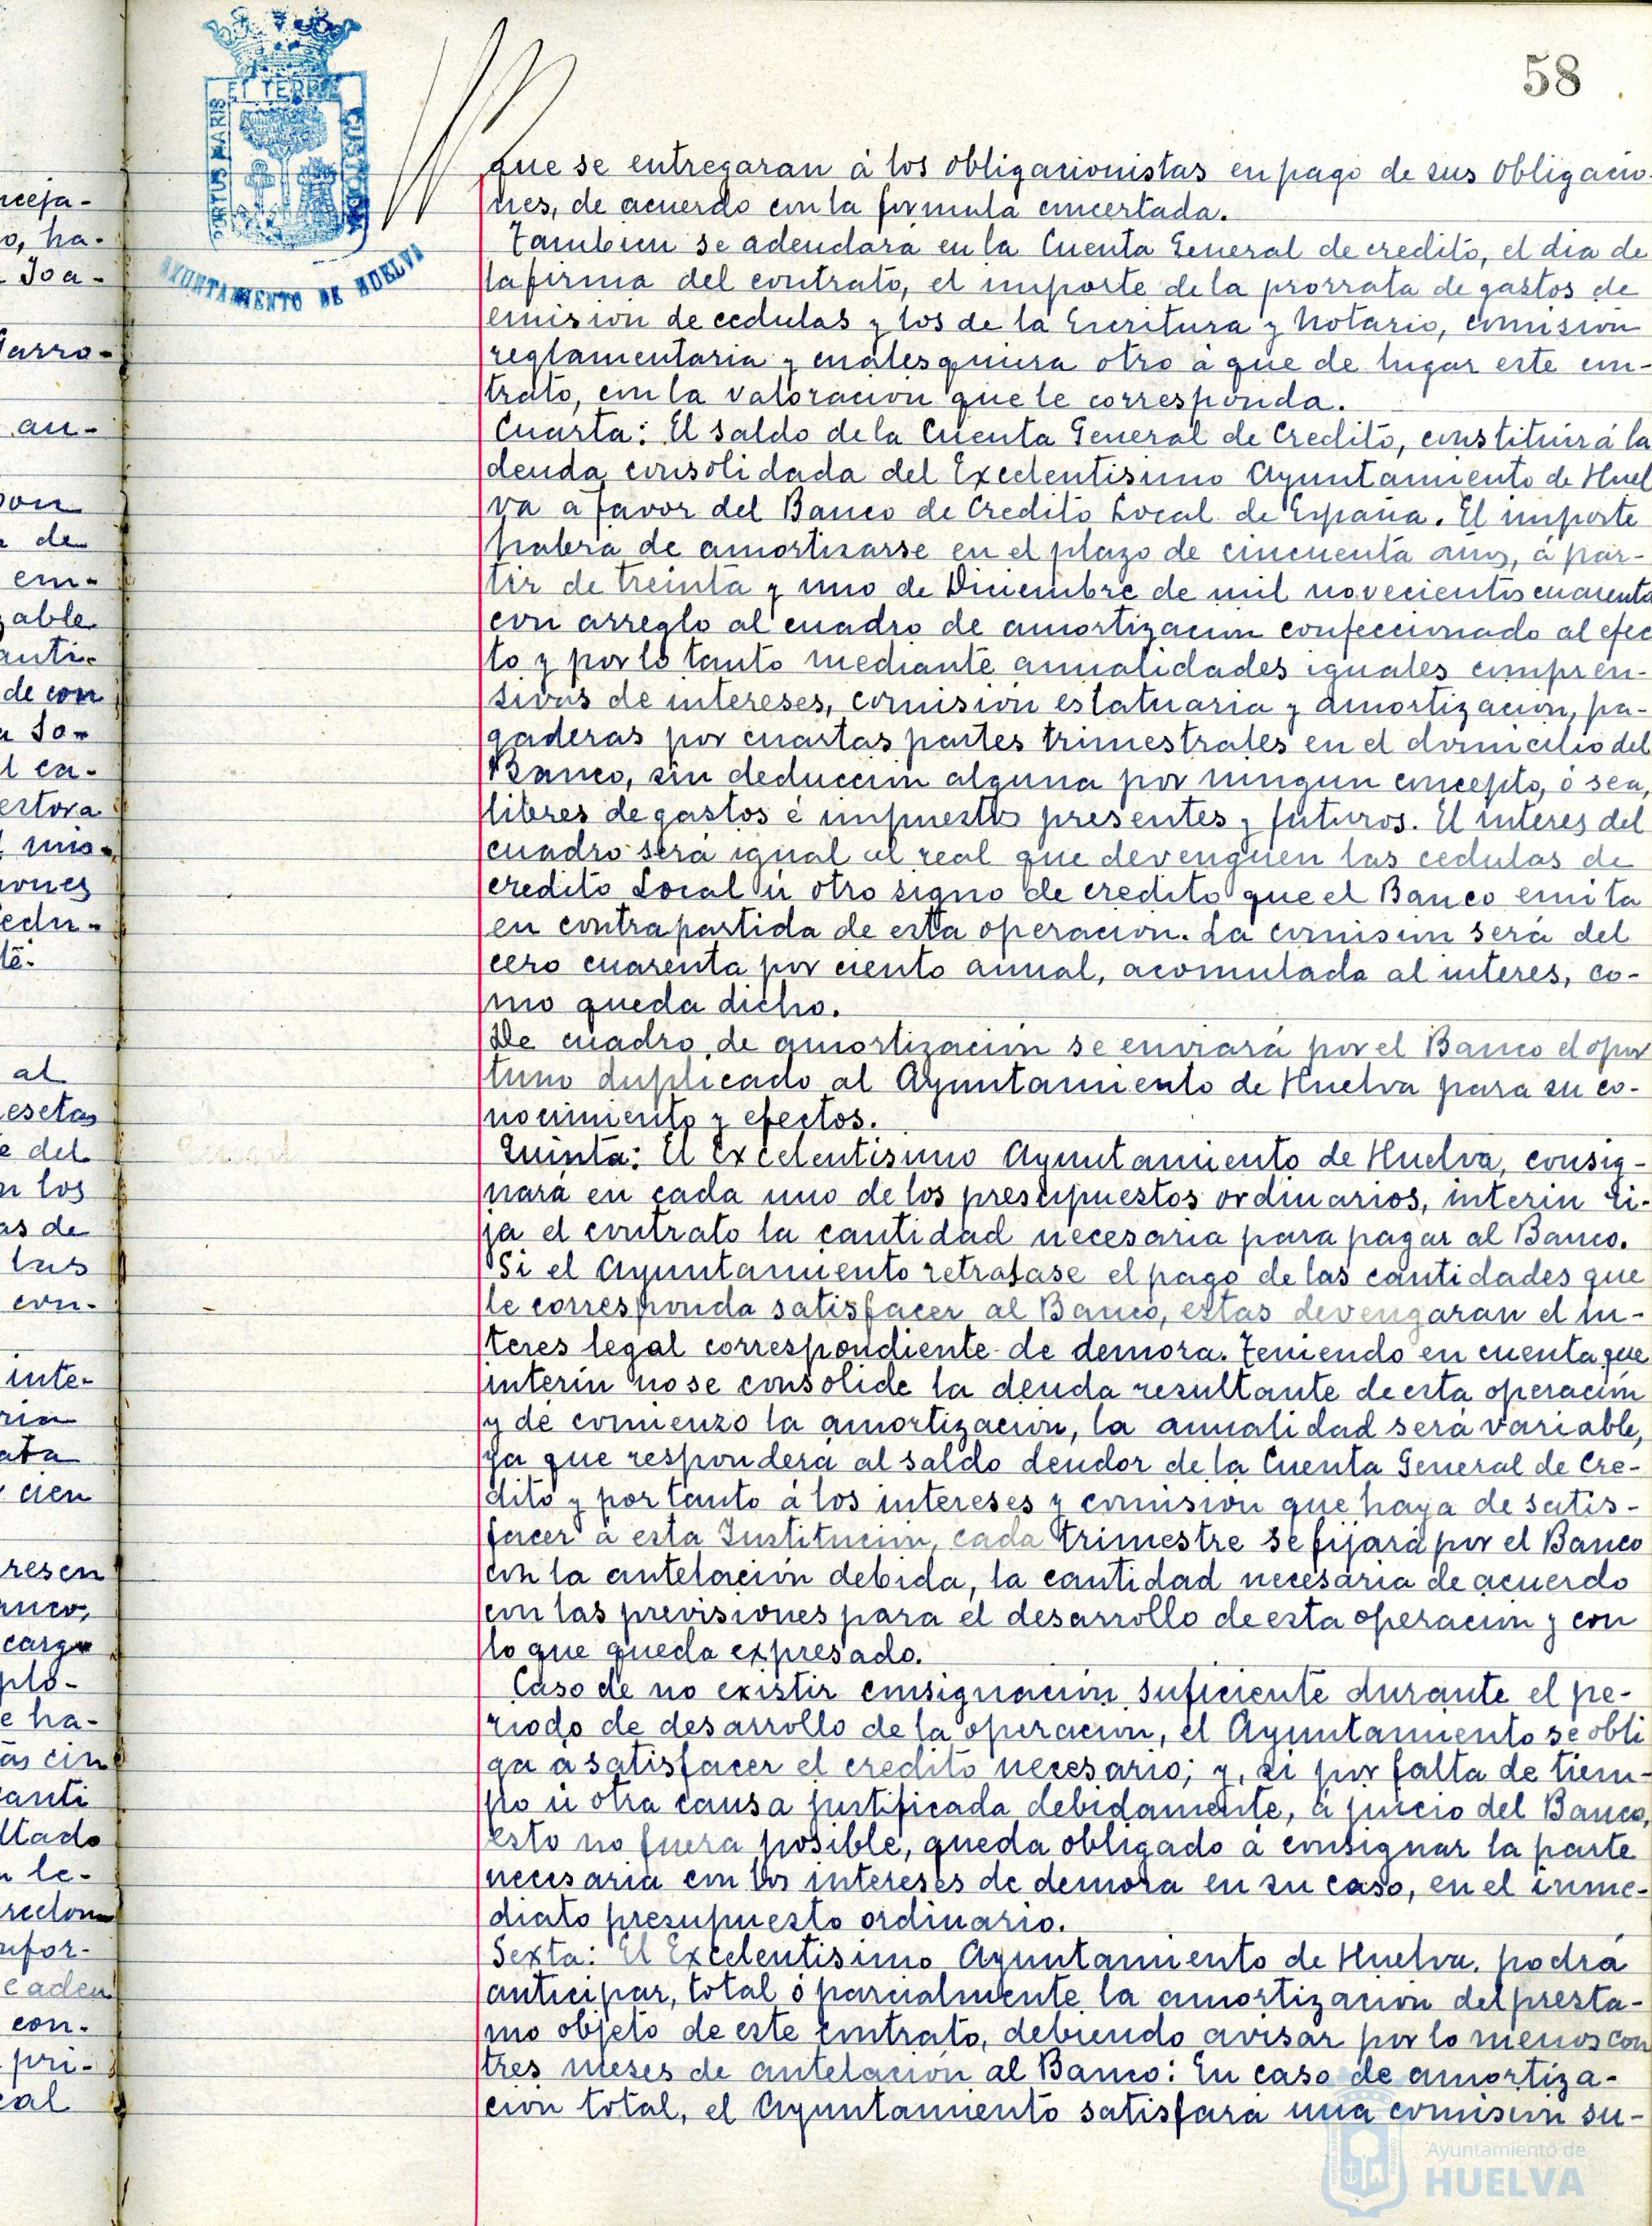 58
PORTUS MARIS
ET TERRE
CUSTODIA
AYUNTAMIENTO DE HUELVA
que se entregaran á los obligacionistas en pago de sus obligacio-
nes, de acuerdo con la formula concertada.
Tambien se adeudará en la Cuenta General de credito, el dia de
la firma del contrato, el importe de la prorrata de gastos de
emision de cedulas y los de la Escritura y Notario, comision
reglamentaria y cualesquiera otro á que de lugar este con-
trato, con la valoracion que le corresponda.
Cuarta: El saldo de la Cuenta General de Credito, constituirá la
deuda consolidada del Excelentisimo Ayuntamiento de Huel
va a favor del Banco de Credito Local de España. El importe
habrá de amortizarse en el plazo de cincuenta años, á par-
tir de treinta y uno de Diciembre de mil novecientos cuarenta
con arreglo al cuadro de amortizacion confeccionado al efec
to y por lo tanto mediante anualidades iguales compren-
sivas de intereses, comision estatuaria y amortizacion, pa-
gaderas por cuartas partes trimestrales en el domicilio del
Banco, sin deduccion alguna por ningun concepto, ó sea,
libres de gastos é impuestos presentes y futuros. El interes del
cuadro será igual al real que devenguen las cedulas de
credito Local ú otro signo de credito que el Banco emita
en contrapartida de esta operacion. La comision será del
cero cuarenta por ciento anual, acomulada al interes, co-
mo queda dicho.
De cuadro de amortización se enviará por el Banco el opor
tuno duplicado al Ayuntamiento de Huelva para su co-
nocimiento y efectos.
Quinta: El Excelentisimo Ayuntamiento de Huelva, consig-
nará en cada uno de los presupuestos ordinarios, interin ri-
ja el contrato la cantidad necesaria para pagar al Banco.
Si el Ayuntamiento retrasase el pago de las cantidades que
le corresponda satisfacer al Banco, estas devengaran el in-
teres legal correspondiente de demora. Teniendo en cuenta que
interin no se consolide la deuda resultante de esta operacion
y dé comienzo la amortización, la anualidad será variable,
ya que responderá al saldo deudor de la Cuenta General de Cre-
dito y por tanto á los intereses y comision que haya de satis-
facer á esta Institucion, cada trimestre se fijará por el Banco
con la antelación debida, la cantidad necesaria de acuerdo
con las previsiones para el desarrollo de esta operacion y con
lo que queda expresado.
Caso de no existir consignacion suficiente durante el pe-
riodo de desarrollo de la operacion, el Ayuntamiento se obli
ga a satisfacer el credito necesario; y, si por falta de tiem-
po ú otra causa justificada debidamente, á juicio del Banco,
esto no fuera posible, queda obligado á consignar la parte
necesaria con los intereses de demora en su caso, en el inme-
diato presupuesto ordinario.
Sexta: El Excelentisimo Ayuntamiento de Huelva, podrá
anticipar, total ó parcialmente la amortizacion del presta-
mo objeto de este contrato, debiendo avisar por lo menos con
tres meses de antelación al Banco: En caso de amortiza-
cion total, el Ayuntamiento satisfará una comision su-
Ayuntamiento de
HUELVA